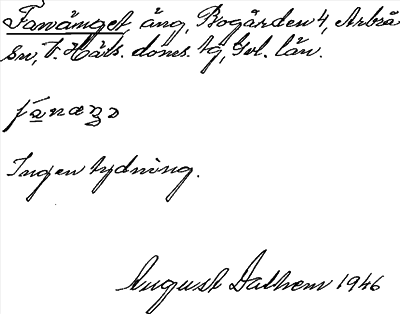 Fanänget, äng, Rogården 4, Arbrå
sn, V. Häls. doms. tg, Gvl. län.
Ingen tydning.
August Dalhem 1946